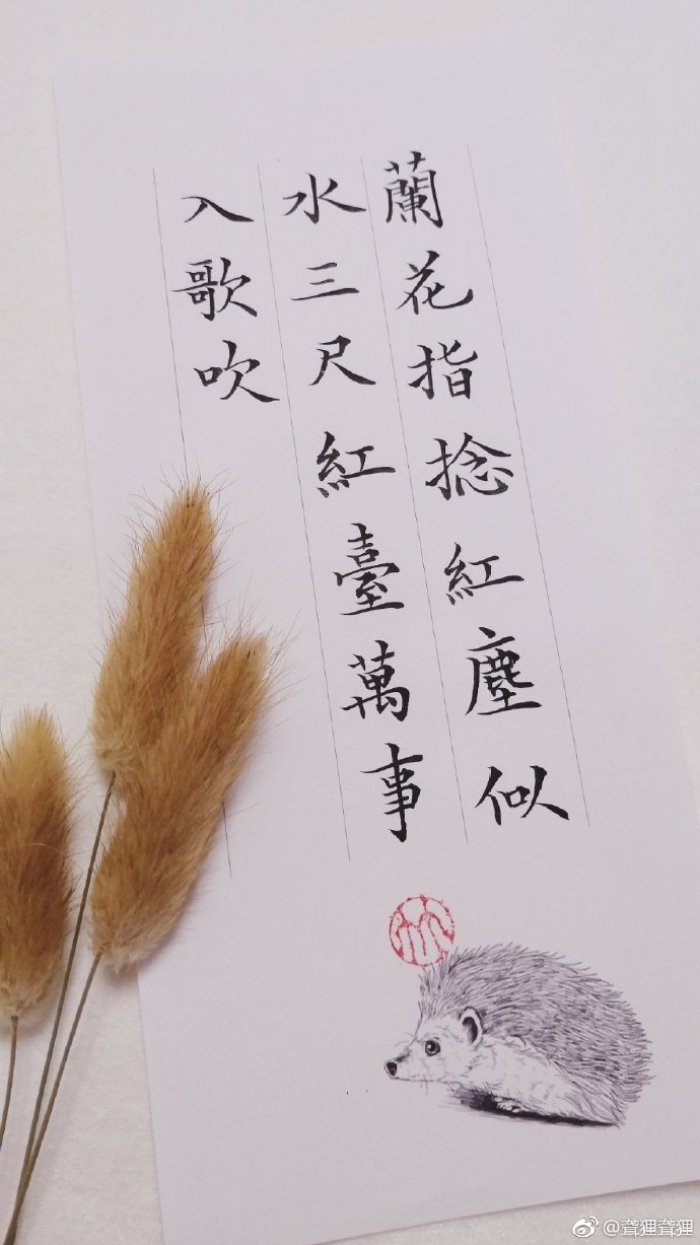 蘭花指捻紅塵似
水三尺紅臺萬事
入歌吹
@聋狸聋狸